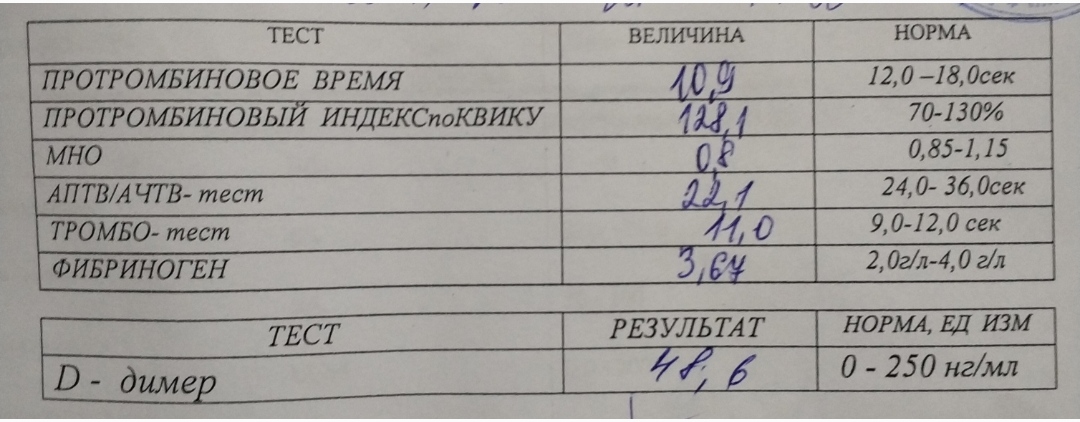 ТЕСТ ВЕЛИЧИНА НОРМА
ПРОТРОМБИНОВОЕ ВРЕМЯ 10,9 12,0 –18,0сек
ПРОТРОМБИНОВЫЙ ИНДЕКСпоКВИКУ 128,1 70-130%
МНО 0,8 0,85-1,15
АПТВ/АЧТВ- тест 22,1 24,0- 36,0сек
ТРОМБО- тест 11,0 9,0-12,0 сек
ФИБРИНОГЕН 3,67 2,0г/л-4,0 г/л
ТЕСТ РЕЗУЛЬТАТ НОРМА, ЕД ИЗМ
D - димер 48,6 0 - 250 нг/мл